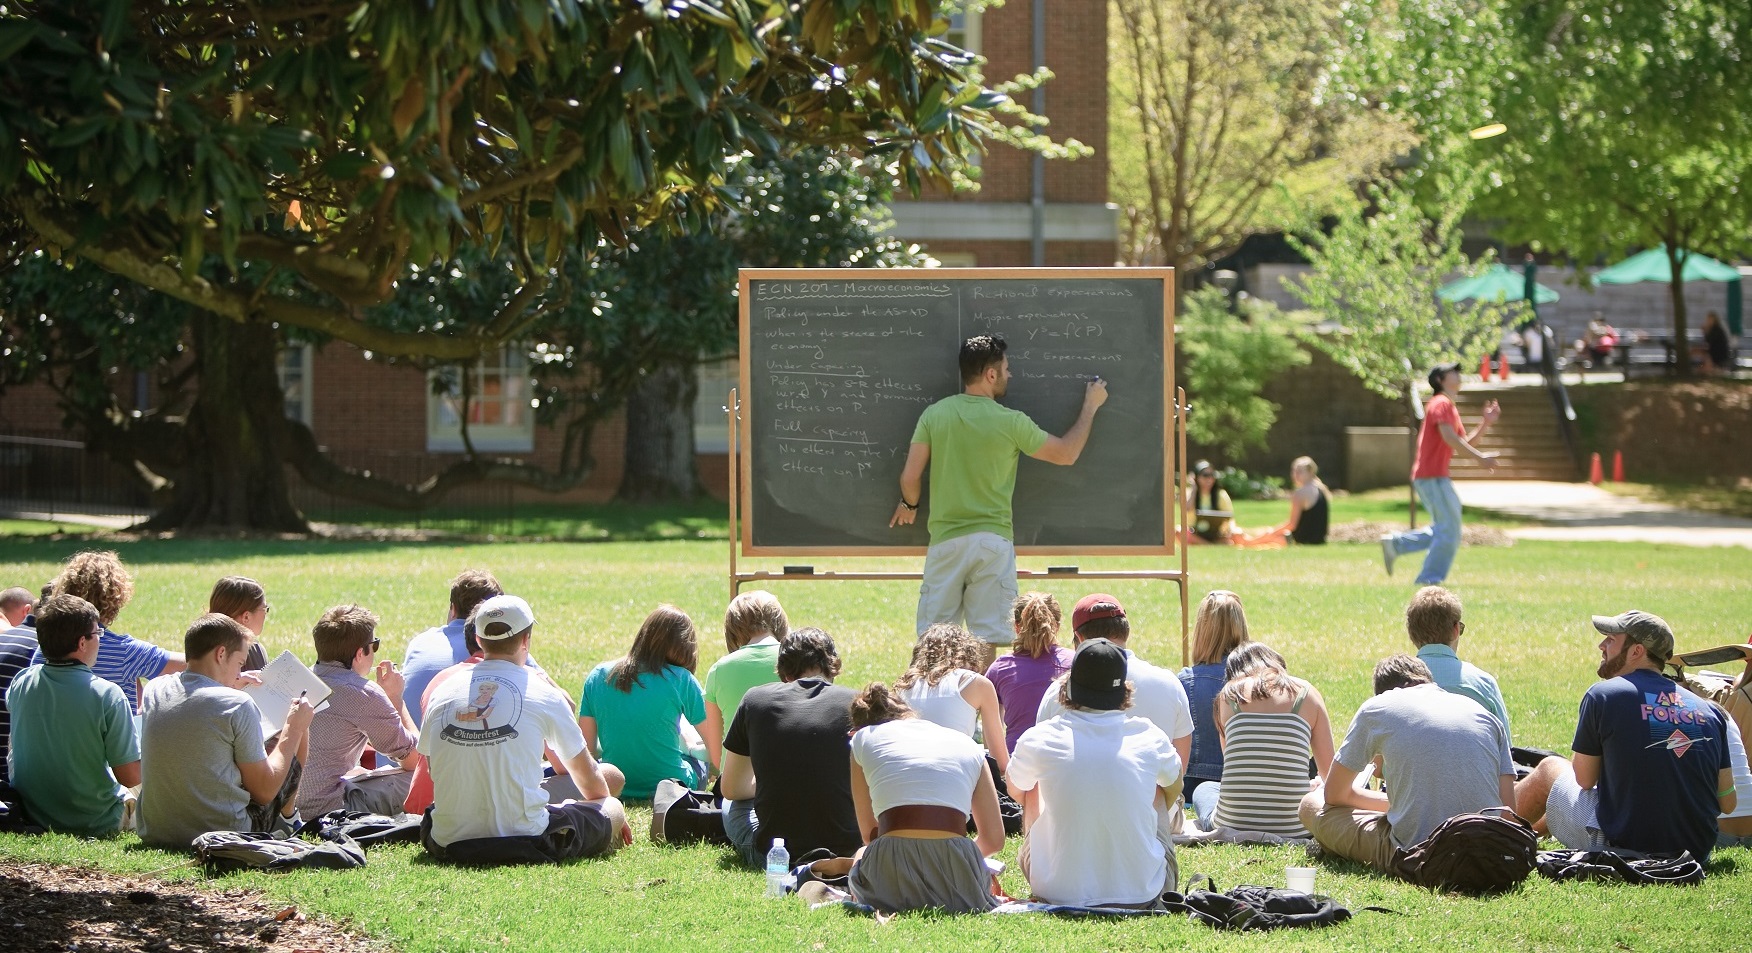 ECN 207 - Macroeconomics
Policy under the AS-AD
what is the state of the
economy
Under Capacity
Policy has S-R effects
Y and permanent
effects on P.
Full Capacity
No effect on the Y
effect on P
Rational Expectations
Myopic expectations
Y = f(P)
Expectations
have an
Oktoberfest
AIR
FORCE